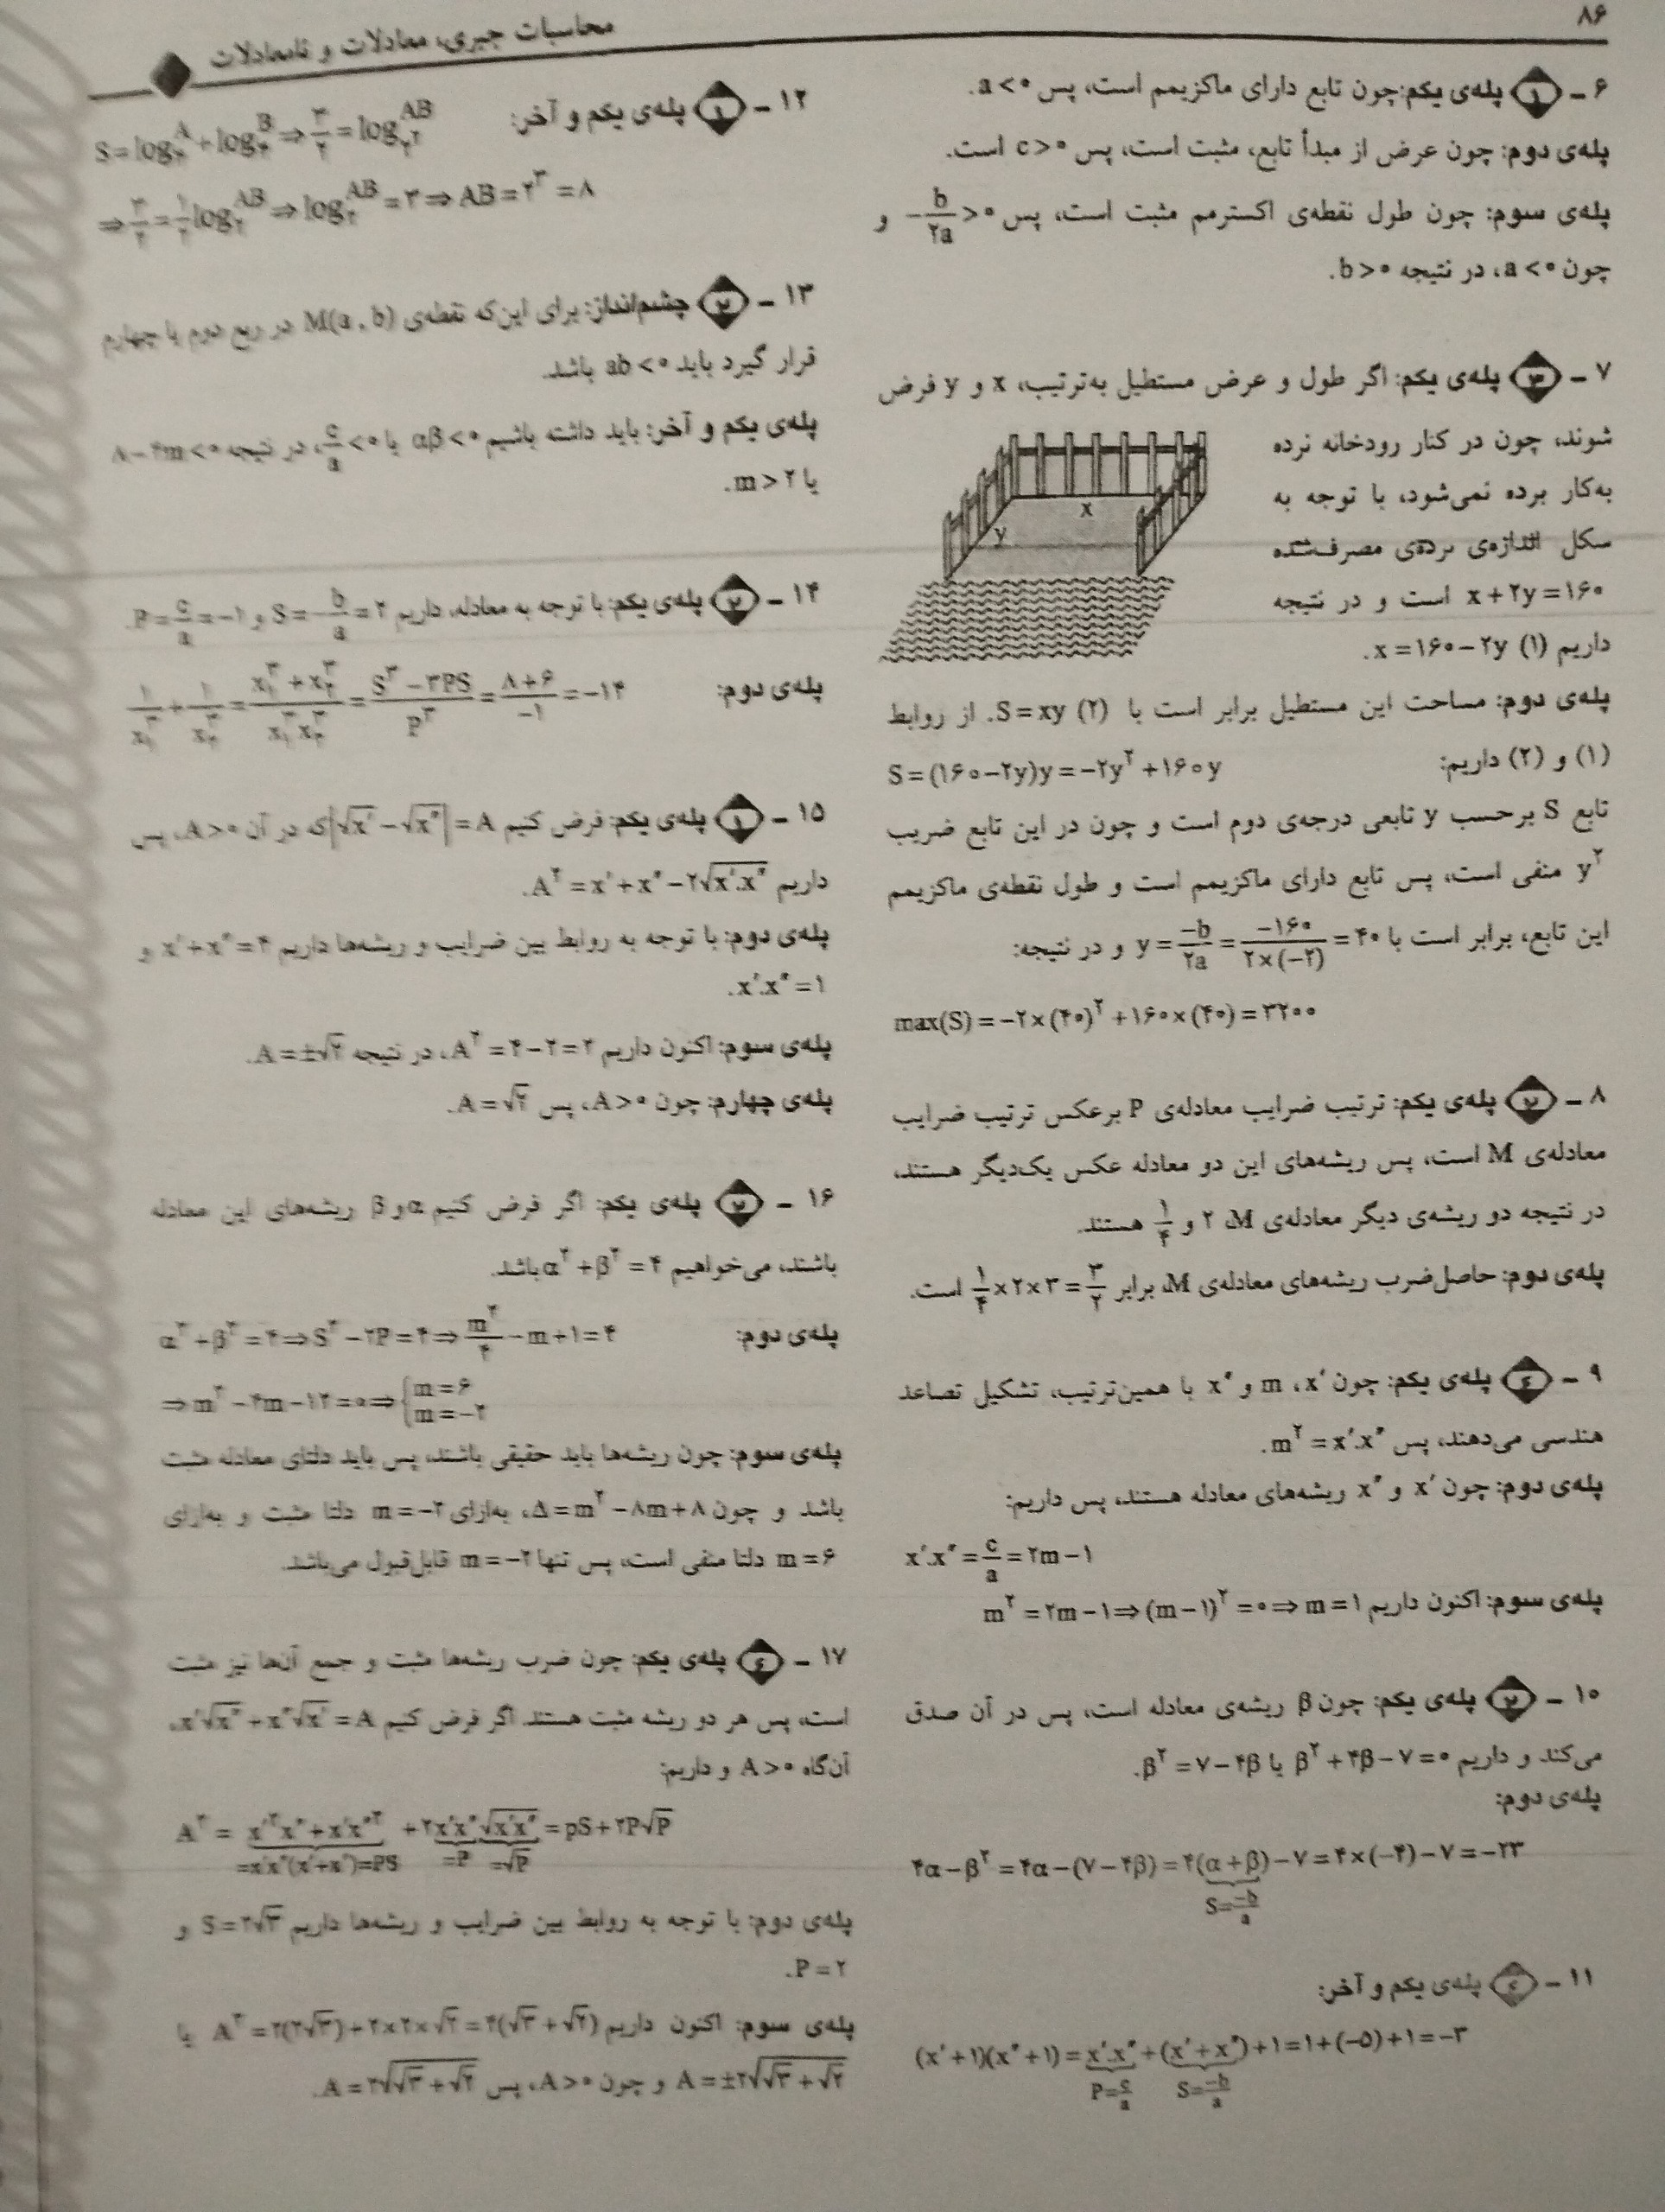 ۸۶
محاسبات جبری، معادلات و نامعادلات
۶ - ۱ پله‌ی یکم: چون تابع دارای ماکزیمم است، پس a < ۰.
پله‌ی دوم: چون عرض از مبدأ تابع، مثبت است، پس c > ۰ است.
پله‌ی سوم: چون طول نقطه‌ی اکسترمم مثبت است، پس -b/۲a > ۰ و
چون a < ۰، در نتیجه b > ۰.
۷ - ۳ پله‌ی یکم: اگر طول و عرض مستطیل به‌ترتیب، x و y فرض
شوند، چون در کنار رودخانه نرده
به‌کار برده نمی‌شود، با توجه به
شکل اندازه‌ی نرده‌ی مصرف‌شده
x + ۲y = ۱۶۰ است و در نتیجه
داریم (۱) x = ۱۶۰ - ۲y.
x
y
پله‌ی دوم: مساحت این مستطیل برابر است با (۲) S = xy. از روابط
(۱) و (۲) داریم: S = (۱۶۰ - ۲y)y = -۲y² + ۱۶۰y
تابع S برحسب y تابعی درجه‌ی دوم است و چون در این تابع ضریب
y² منفی است، پس تابع دارای ماکزیمم است و طول نقطه‌ی ماکزیمم
این تابع، برابر است با y = -b/۲a = -۱۶۰/(۲×(-۲)) = ۴۰ و در نتیجه:
max(S) = -۲×(۴۰)² + ۱۶۰×(۴۰) = ۳۲۰۰
۸ - ۲ پله‌ی یکم: ترتیب ضرایب معادله‌ی P برعکس ترتیب ضرایب
معادله‌ی M است، پس ریشه‌های این دو معادله عکس یک‌دیگر هستند،
در نتیجه دو ریشه‌ی دیگر معادله‌ی M، ۲ و ۱/۴ هستند.
پله‌ی دوم: حاصل‌ضرب ریشه‌های معادله‌ی M، برابر ۱/۴ × ۲ × ۳ = ۳/۲ است.
۹ - ۴ پله‌ی یکم: چون x′، m و x″ با همین‌ترتیب، تشکیل تصاعد
هندسی می‌دهند، پس m² = x′.x″.
پله‌ی دوم: چون x′ و x″ ریشه‌های معادله هستند، پس داریم:
x′.x″ = c/a = ۲m - ۱
پله‌ی سوم: اکنون داریم m² = ۲m - ۱ ⇒ (m - ۱)² = ۰ ⇒ m = ۱
۱۰ - ۲ پله‌ی یکم: چون β ریشه‌ی معادله است، پس در آن صدق
می‌کند و داریم β² + ۴β - ۷ = ۰ یا β² = ۷ - ۴β.
پله‌ی دوم:
۴α - β² = ۴α - (۷ - ۴β) = ۴(α + β) - ۷ = ۴×(-۴) - ۷ = -۲۳
S = -b/a
۱۱ - ۴ پله‌ی یکم و آخر:
(x′ + ۱)(x″ + ۱) = x′.x″ + (x′ + x″) + ۱ = ۱ + (-۵) + ۱ = -۳
P = c/a S = -b/a
۱۲ - ۱ پله‌ی یکم و آخر: S = log₄^A + log₄^B ⇒ ۳/۲ = log_{۲²}^{AB}
⇒ ۳/۲ = ۱/۲ log₂^{AB} ⇒ log₂^{AB} = ۳ ⇒ AB = ۲³ = ۸
۱۳ - ۲ چشم‌انداز: برای این‌که نقطه‌ی M(a , b) در ربع دوم یا چهارم
قرار گیرد باید ab < ۰ باشد.
پله‌ی یکم و آخر: باید داشته باشیم αβ < ۰ یا c/a < ۰، در نتیجه ۸ - ۴m < ۰
یا m > ۲.
۱۴ - ۲ پله‌ی یکم: با توجه به معادله، داریم S = -b/a = ۲ و P = c/a = -۱.
پله‌ی دوم: ۱/x₁³ + ۱/x₂³ = (x₁³ + x₂³)/(x₁³x₂³) = (S³ - ۳PS)/P³ = (۸ + ۶)/-۱ = -۱۴
۱۵ - ۱ پله‌ی یکم: فرض کنیم |√x′ - √x″| = A که در آن A > ۰، پس
داریم A² = x′ + x″ - ۲√(x′.x″).
پله‌ی دوم: با توجه به روابط بین ضرایب و ریشه‌ها داریم x′ + x″ = ۴ و
x′.x″ = ۱.
پله‌ی سوم: اکنون داریم A² = ۴ - ۲ = ۲، در نتیجه A = ±√۲.
پله‌ی چهارم: چون A > ۰، پس A = √۲.
۱۶ - ۲ پله‌ی یکم: اگر فرض کنیم α و β ریشه‌های این معادله
باشند، می‌خواهیم α² + β² = ۴ باشد.
پله‌ی دوم: α² + β² = ۴ ⇒ S² - ۲P = ۴ ⇒ m²/۴ - m + ۱ = ۴
⇒ m² - ۴m - ۱۲ = ۰ ⇒ { m = ۶
m = -۲
پله‌ی سوم: چون ریشه‌ها باید حقیقی باشند، پس باید دلتای معادله مثبت
باشد و چون Δ = m² - ۸m + ۸، به‌ازای m = -۲ دلتا مثبت و به‌ازای
m = ۶ دلتا منفی است، پس تنها m = -۲ قابل‌قبول می‌باشد.
۱۷ - ۴ پله‌ی یکم: چون ضرب ریشه‌ها مثبت و جمع آن‌ها نیز مثبت
است، پس هر دو ریشه مثبت هستند. اگر فرض کنیم x′√x″ + x″√x′ = A،
آن‌گاه A > ۰ و داریم:
A² = x′²x″ + x′x″² + ۲x′x″√(x′x″) = pS + ۲P√P
=x′x″(x′+x″)=PS =P =√P
پله‌ی دوم: با توجه به روابط بین ضرایب و ریشه‌ها داریم S = ۲√۳ و
P = ۲.
پله‌ی سوم: اکنون داریم A² = ۲(۲√۳) + ۲×۲×√۲ = ۴(√۳ + √۲) یا
A = ±۲√(√۳ + √۲) و چون A > ۰، پس A = ۲√(√۳ + √۲).